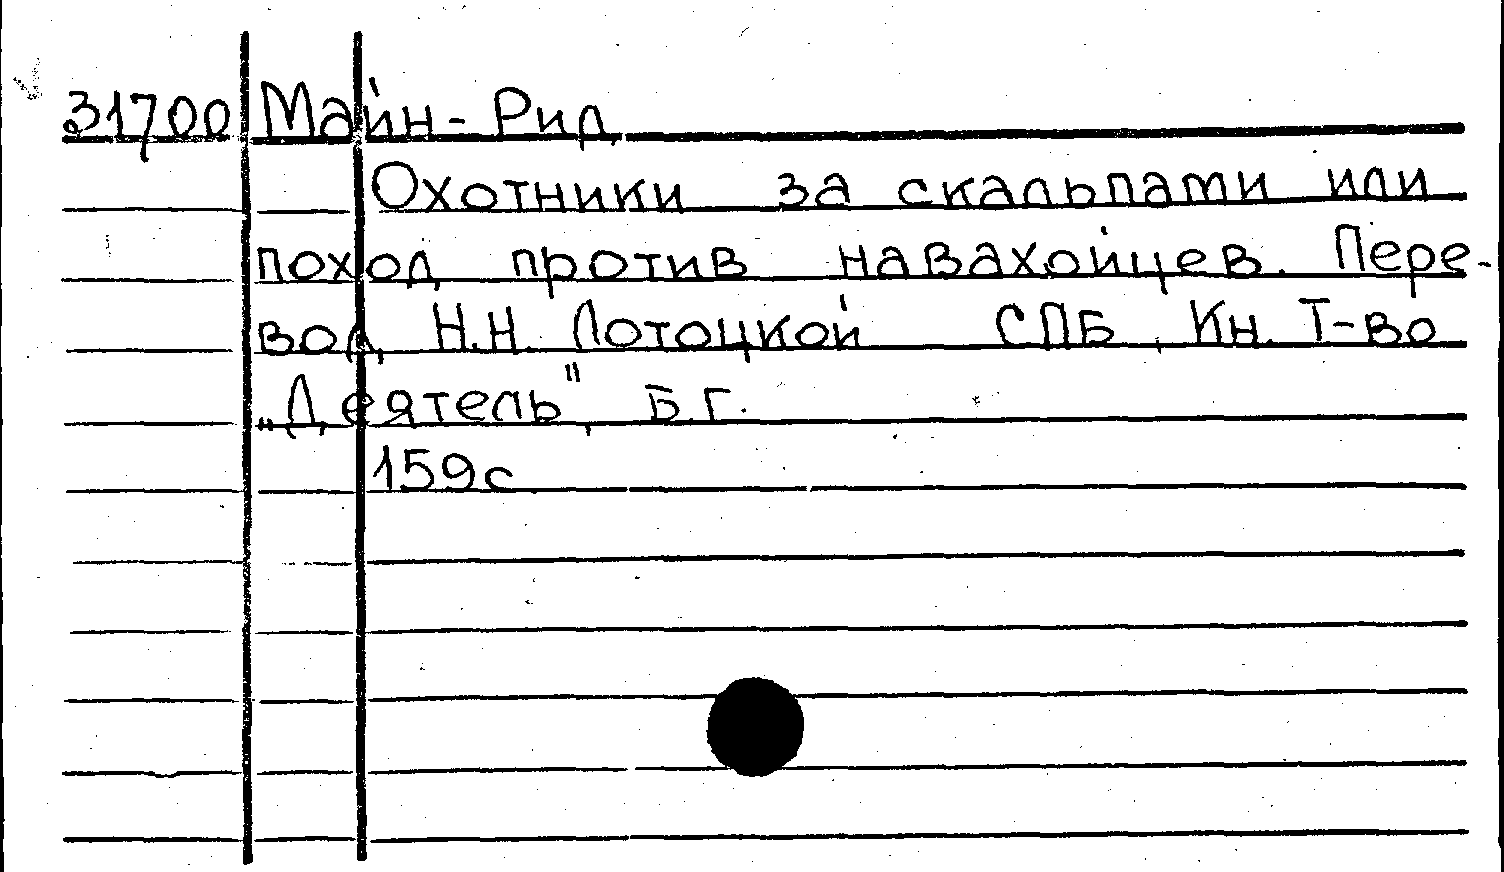 31700 Майн-Рид
Охотники за скальпами или
поход против навахойцев. Пере-
вод Н.Н. Лотоцкой СПБ, Кн. Т-во
„Деятель", Б.Г.
159с